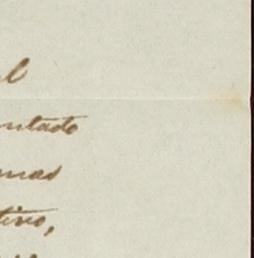 l
ntado
mas
tivo,